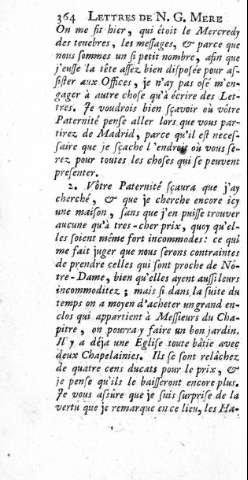 364 LETTRES DE N. G. MERE
On me fit hier, qui étoit le Mercredy
des tenebres, les messages, & parce que
nous sommes un si petit nombre, afin que
j'eusse la tête assez bien disposée pour as-
sister aux Offices, je n'ay pas osé m'en-
gager à autre chose qu'à écrire des Let-
tres. Je voudrois bien sçavoir où vôtre
Paternité pense aller lors que vous par-
tirez de Madrid, parce qu'il est neces-
saire que je sçache l'endroit où vous se-
rez pour toutes les choses qui se peuvent
presenter.
2. Vôtre Paternité sçaura que j'ay
cherché, & que je cherche encore icy
une maison, sans que j'en puisse trouver
aucune qu'à tres-cher prix, quoy qu'el-
les soient même fort incommodes: ce qui
me fait juger que nous serons contraintes
de prendre celles qui sont proche de Nô-
tre-Dame, bien qu'elles ayent aussi leurs
incommoditez; mais si dans la suite du
temps on a moyen d'acheter un grand en-
clos qui appartient à Messieurs du Cha-
pitre, on pourra y faire un bon jardin.
Il y a déja une Eglise toute bâtie avec
deux Chapelainies. Ils se sont relâchez
de quatre cens ducats pour le prix, &
je pense qu'ils le baisseront encore plus.
Je vous assure que je suis surprise de la
vertu que je remarque en ce lieu, les Ha-